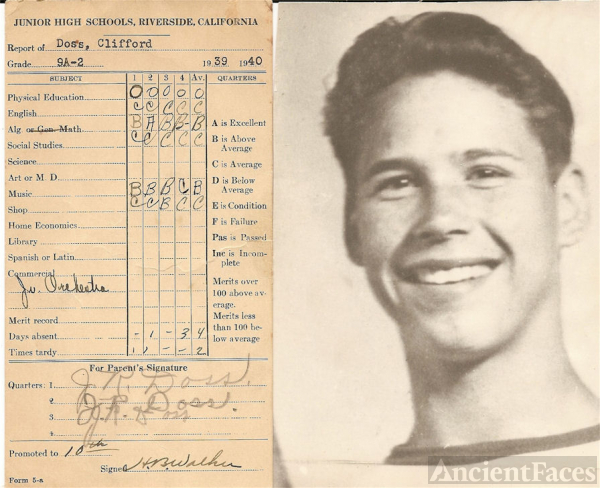 JUNIOR HIGH SCHOOLS, RIVERSIDE, CALIFORNIA
Report of Doss, Clifford
Grade 9A-2 1939 1940
SUBJECT 1 2 3 4 Av. QUARTERS
Physical Education O O O O O
English C C C C C
Alg or Gen. Math B A B B- B
Social Studies C C C C C
Science
Art or M. D.
Music B B B C B
Shop C C B C C
Home Economics
Library
Spanish or Latin
Commercial
Jr. Orchestra
Merit record
Days absent - 1 - 3 4
Times tardy 1 1 - - 2
A is Excellent
B is Above
Average
C is Average
D is Below
Average
E is Condition
F is Failure
Pas is Passed
Inc is Incom-
plete
Merits over
100 above av-
erage.
Merits less
than 100 be-
low average
For Parent's Signature
Quarters: 1 J. R. Doss.
2 J. R. Doss.
3
4
Promoted to 10th
Signed H B Walker
Form 5-a
AncientFaces